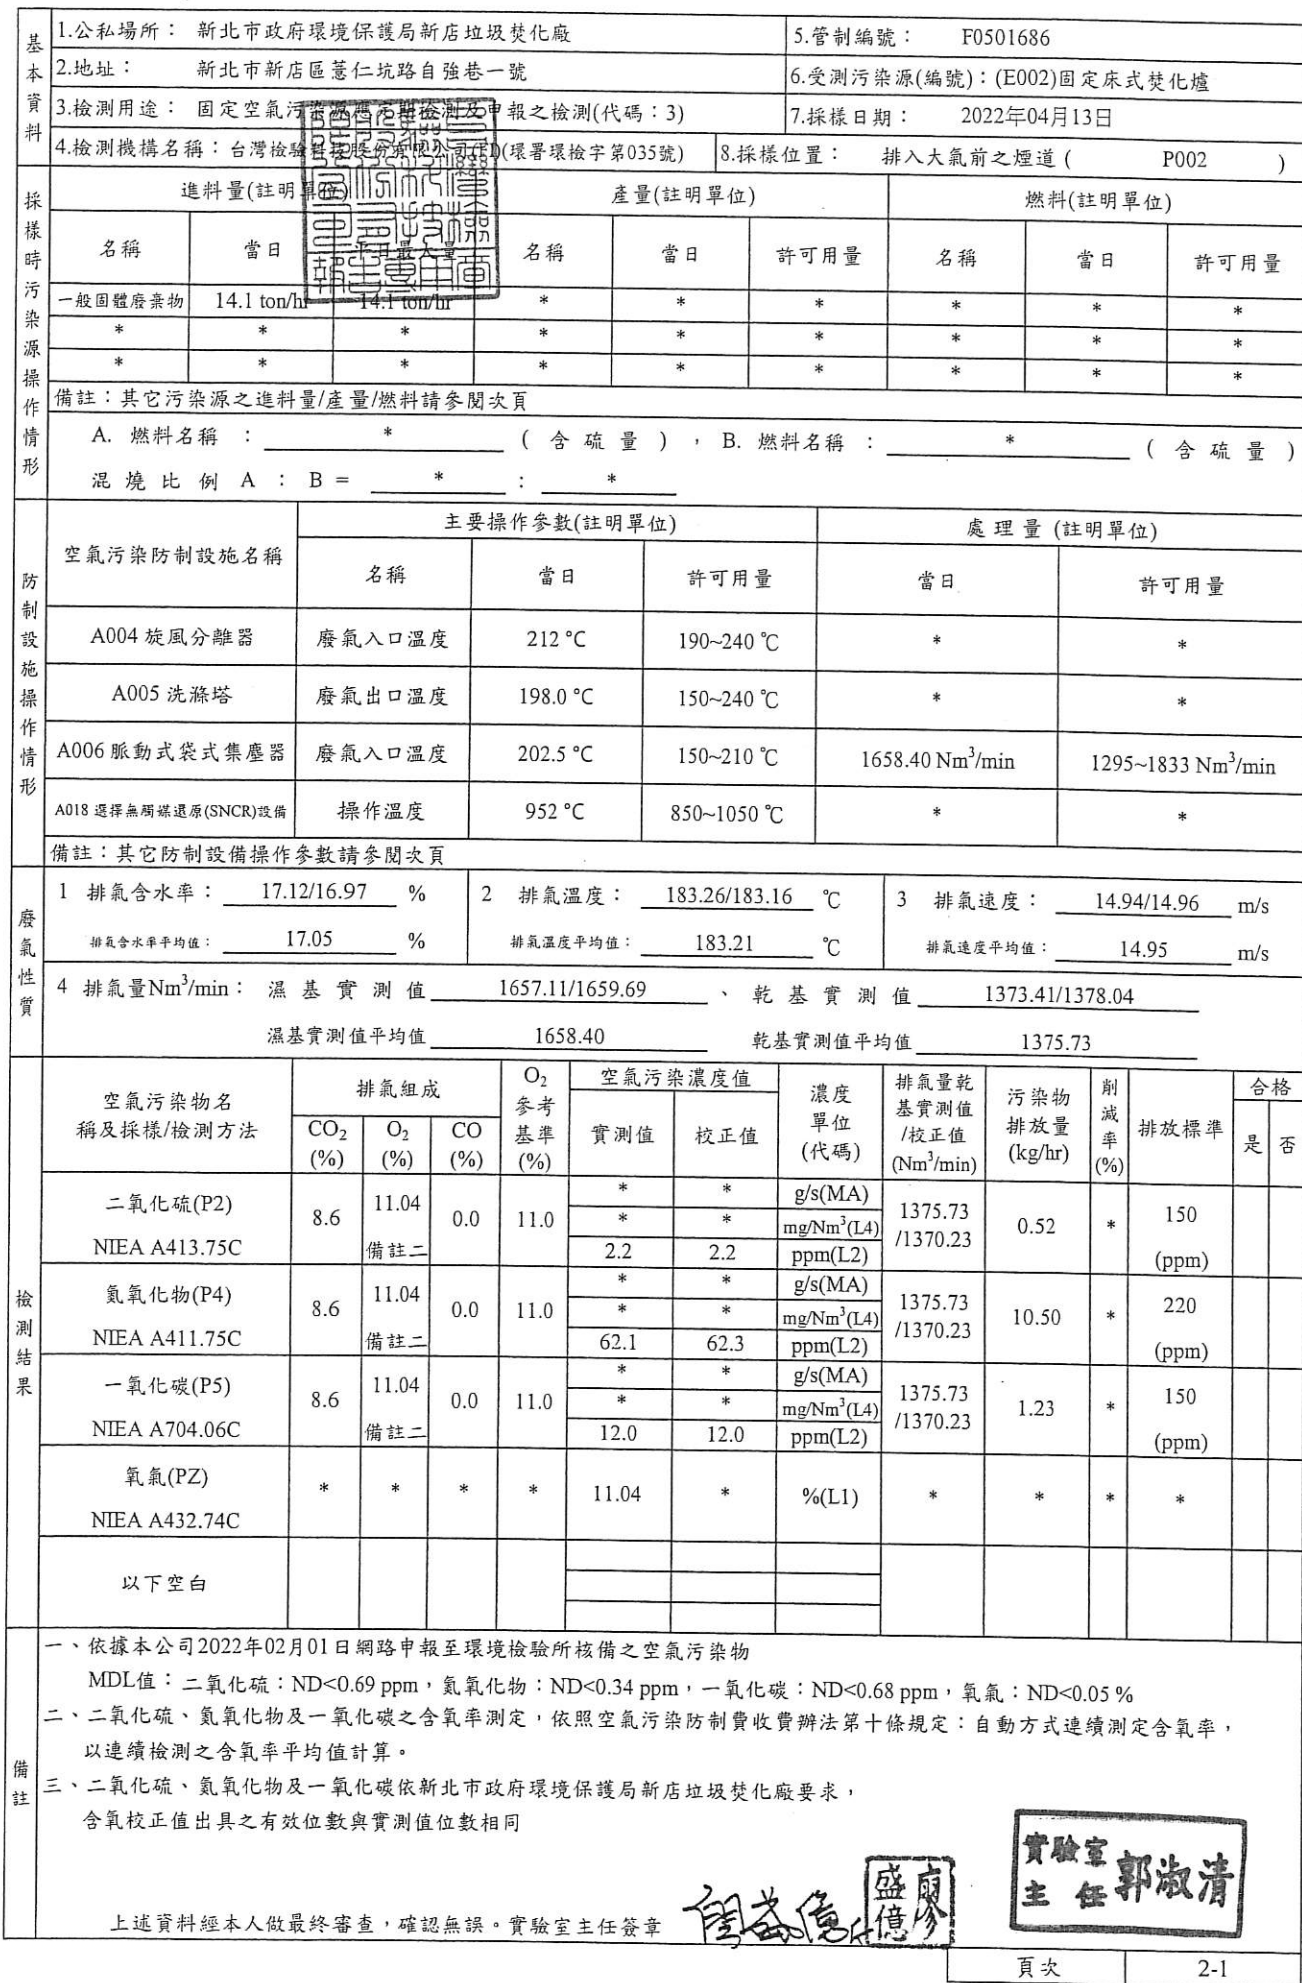 基本資料
1.公私場所： 新北市政府環境保護局新店垃圾焚化廠
5.管制編號： F0501686
2.地址： 新北市新店區薏仁坑路自強巷一號
6.受測污染源(編號)：(E002)固定床式焚化爐
3.檢測用途： 固定空氣污染源應定期檢測及申報之檢測(代碼：3)
7.採樣日期： 2022年04月13日
4.檢測機構名稱：台灣檢驗科技股份有限公司 (環署環檢字第035號)
8.採樣位置： 排入大氣前之煙道 ( P002 )
採樣時污染源操作情形
進料量(註明單位) 產量(註明單位) 燃料(註明單位)
名稱 當日 平日最大量 名稱 當日 許可用量 名稱 當日 許可用量
一般固體廢棄物 14.1 ton/hr 14.1 ton/hr * * * * * *
* * * * * * * * *
* * * * * * * * *
備註：其它污染源之進料量/產量/燃料請參閱次頁
A. 燃料名稱 ： * ( 含硫量 ) ， B. 燃料名稱 ： * ( 含硫量 )
混燒比例 A ： B = * ： *
防制設施操作情形
空氣污染防制設施名稱 主要操作參數(註明單位) 處理量 (註明單位)
名稱 當日 許可用量 當日 許可用量
A004 旋風分離器 廢氣入口溫度 212 °C 190~240 ℃ * *
A005 洗滌塔 廢氣出口溫度 198.0 °C 150~240 ℃ * *
A006 脈動式袋式集塵器 廢氣入口溫度 202.5 °C 150~210 ℃ 1658.40 Nm³/min 1295~1833 Nm³/min
A018 選擇無觸媒還原(SNCR)設備 操作溫度 952 °C 850~1050 ℃ * *
備註：其它防制設備操作參數請參閱次頁
廢氣性質
1 排氣含水率： 17.12/16.97 % 2 排氣溫度： 183.26/183.16 ℃ 3 排氣速度： 14.94/14.96 m/s
排氣含水率平均值： 17.05 % 排氣溫度平均值： 183.21 ℃ 排氣速度平均值： 14.95 m/s
4 排氣量Nm³/min： 濕基實測值 1657.11/1659.69 、 乾基實測值 1373.41/1378.04
濕基實測值平均值 1658.40 乾基實測值平均值 1375.73
檢測結果
空氣污染物名稱及採樣/檢測方法 排氣組成 O₂參考基準(%) 空氣污染濃度值 濃度單位(代碼) 排氣量乾基實測值/校正值(Nm³/min) 污染物排放量(kg/hr) 削減率(%) 排放標準 合格
CO₂(%) O₂(%) CO(%) 實測值 校正值 是 否
二氧化硫(P2) 8.6 11.04 0.0 11.0 * * g/s(MA) 1375.73 0.52 * 150
* * mg/Nm³(L4) /1370.23
NIEA A413.75C 備註二 2.2 2.2 ppm(L2) (ppm)
氮氧化物(P4) 8.6 11.04 0.0 11.0 * * g/s(MA) 1375.73 10.50 * 220
* * mg/Nm³(L4) /1370.23
NIEA A411.75C 備註二 62.1 62.3 ppm(L2) (ppm)
一氧化碳(P5) 8.6 11.04 0.0 11.0 * * g/s(MA) 1375.73 1.23 * 150
* * mg/Nm³(L4) /1370.23
NIEA A704.06C 備註二 12.0 12.0 ppm(L2) (ppm)
氧氣(PZ) * * * * 11.04 * %(L1) * * * *
NIEA A432.74C
以下空白
備註
一、依據本公司2022年02月01日網路申報至環境檢驗所核備之空氣污染物
MDL值：二氧化硫：ND<0.69 ppm，氮氧化物：ND<0.34 ppm，一氧化碳：ND<0.68 ppm，氧氣：ND<0.05 %
二、二氧化硫、氮氧化物及一氧化碳之含氧率測定，依照空氣污染防制費收費辦法第十條規定：自動方式連續測定含氧率，
以連續檢測之含氧率平均值計算。
三、二氧化硫、氮氧化物及一氧化碳依新北市政府環境保護局新店垃圾焚化廠要求，
含氧校正值出具之有效位數與實測值位數相同
實驗室主任 郭淑清
上述資料經本人做最終審查，確認無誤。實驗室主任簽章
廖盛億
頁次 2-1